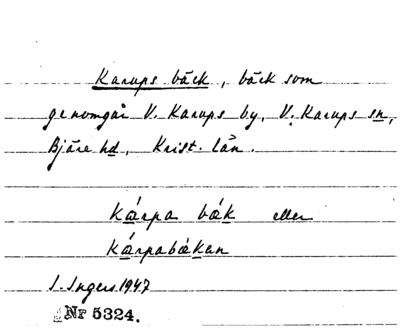 Karups bäck, bäck som
genomgår V. Karups by, V. Karups sn,
Bjäre hd, Krist. län.
kárpa bǽk eller
kárpabǽkan
I. Ingers 1947
Nr 5324.